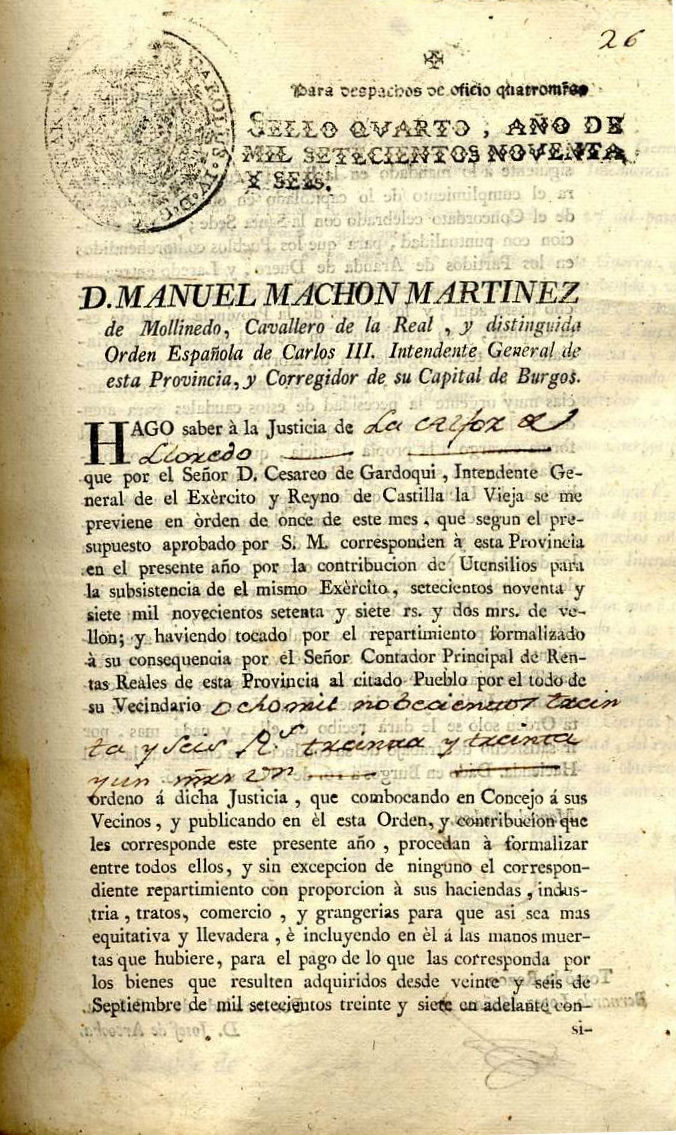 26
✠
Para despachos de oficio quatro mrs.
SELLO QVARTO, AÑO DE
MIL SETECIENTOS NOVENTA
Y SEIS.
CAROLUS IV D.G.
D. MANUEL MACHON MARTINEZ
de Mollinedo, Cavallero de la Real, y distinguida
Orden Española de Carlos III. Intendente General de
esta Provincia, y Corregidor de su Capital de Burgos.
HAGO saber à la Justicia de La
Lloredo
que por el Señor D. Cesareo de Gardoqui, Intendente Ge-
neral de el Exèrcito y Reyno de Castilla la Vieja se me
previene en òrden de once de este mes, que segun el pre-
supuesto aprobado por S. M. corresponden à esta Provincia
en el presente año por la contribucion de Utensilios para
la subsistencia de el mismo Exèrcito, setecientos noventa y
siete mil novecientos setenta y siete rs. y dos mrs. de ve-
llon; y haviendo tocado por el repartimiento formalizado
à su consequencia por el Señor Contador Principal de Ren-
tas Reales de esta Provincia al citado Pueblo por el todo de
su Vecindario ocho mil nobecientos trein
ta y seis Rs. treinta y treinta
y un mrs vn
ordeno á dicha Justicia, que combocando en Concejo á sus
Vecinos, y publicando en èl esta Orden, y contribucion que
les corresponde este presente año, procedan à formalizar
entre todos ellos, y sin excepcion de ninguno el correspon-
diente repartimiento con proporcion à sus haciendas, indus-
tria, tratos, comercio, y grangerias para que asi sea mas
equitativa y llevadera, è incluyendo en èl á las manos muer-
tas que hubiere, para el pago de lo que las corresponda por
los bienes que resulten adquiridos desde veinte y seis de
Septiembre de mil setecientos treinte y siete en adelante con-
si-